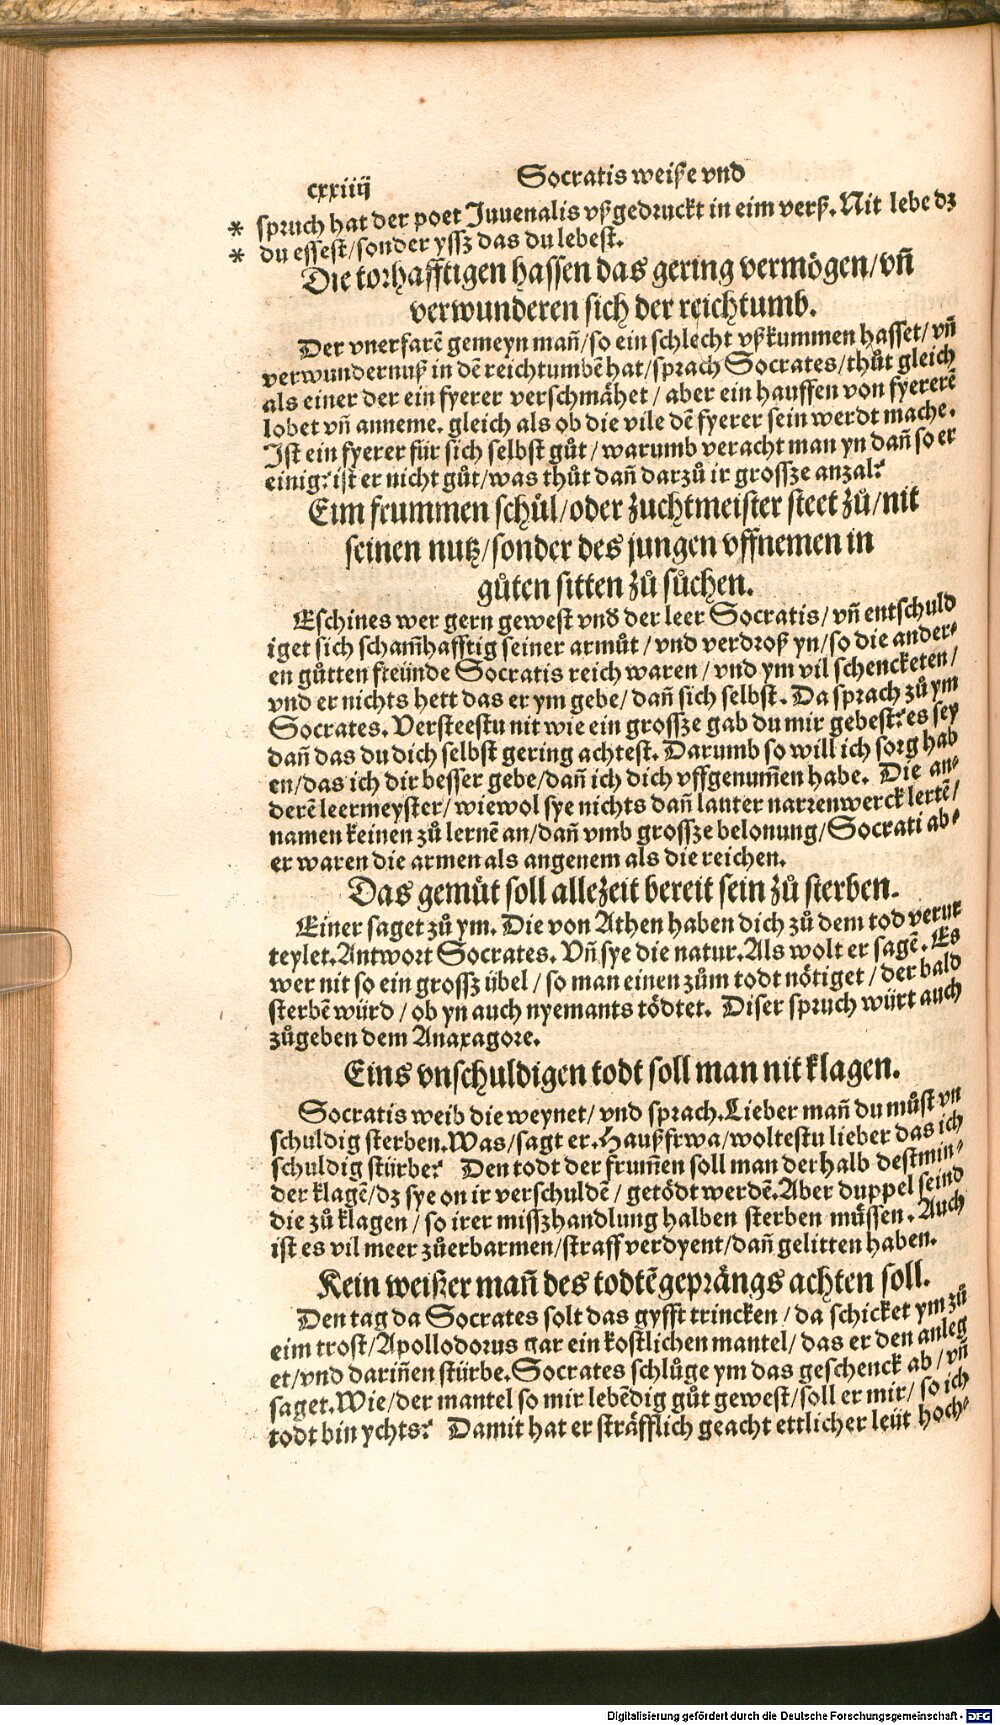 cxxiiij Socratis weiße vnd
* spruch hat der poet Juuenalis vßgedruckt in eim verß. Nit lebe dz
* du essest/sonder yssz das du lebest.
Die torhafftigen hassen das gering vermögen/vn̄
verwunderen sich der reichtumb.
Der vnerfarē gemeyn man̄/so ein schlecht vßkummen hasset/vn̄
verwundernuß in dē reichtumbē hat/sprach Socrates/thůt gleich
als einer der ein fyerer verschmähet/aber ein hauffen von fyererē
lobet vn̄ anneme. gleich als ob die vile dē fyerer sein werdt mache.
Ist ein fyerer für sich selbst gůt/warumb veracht man yn dan̄ so er
einig? ist er nicht gůt/was thůt dan̄ darzů ir grossze anzal?
Eim frummen schůl/oder zuchtmeister steet zů/nit
seinen nutz/sonder des jungen vffnemen in
gůten sitten zů sůchen.
Eschines wer gern gewest vnd der leer Socratis/vn̄ entschuld
iget sich scham̄hafftig seiner armůt/vnd verdroß yn/so die ander⸗
en gůtten freünde Socratis reich waren/vnd ym vil schencketen/
vnd er nichts hett das er ym gebe/dan̄ sich selbst. Da sprach zů ym
Socrates. Versteestu nit wie ein grossze gab du mir gebest? es sey
dan̄ das du dich selbst gering achtest. Darumb so will ich sorg hab
en/das ich dir besser gebe/dan̄ ich dich vffgenum̄en habe. Die an⸗
derē leermeyster/wiewol sye nichts dan̄ lauter narrenwerck lertē/
namen keinen zů lernē an/dan̄ vmb grossze belonung/Socrati ab⸗
er waren die armen als angenem als die reichen.
Das gemůt soll allezeit bereit sein zů sterben.
Einer saget zů ym. Die von Athen haben dich zů dem tod verur
teylet. Antwort Socrates. Vn̄ sye die natur. Als wolt er sagē. Es
wer nit so ein grossz übel/so man einen zům todt nötiget/der bald
sterbē würd/ob yn auch nyemants tödtet. Diser spruch würt auch
zůgeben dem Anaxagore.
Eins vnschuldigen todt soll man nit klagen.
Socratis weib die weynet/vnd sprach. Lieber man̄ du můst vn
schuldig sterben. Was/sagt er. Haußfrwa/woltestu lieber das ich
schuldig stürbe? Den todt der frum̄en soll man der halb destmin⸗
der klagē/dz sye on ir verschuldē/getödt werdē. Aber duppel seind
die zů klagen/so irer misszhandlung halben sterben müssen. Auch
ist es vil meer zůerbarmen/straff verdyent/dan̄ gelitten haben.
Kein weißer man̄ des todtē geprängs achten soll.
Den tag da Socrates solt das gyfft trincken/da schicket ym zů
eim trost/Apollodorus gar ein kostlichen mantel/das er den anleg
et/vnd darin̄en stürbe. Socrates schlůge ym das geschenck ab/vn̄
saget. Wie/der mantel so mir lebēdig gůt gewest/soll er mir/so ich
todt bin ychts? Damit hat er sträfflich geacht ettlicher leüt hoch⸗
Digitalisierung gefördert durch die Deutsche Forschungsgemeinschaft - DFG